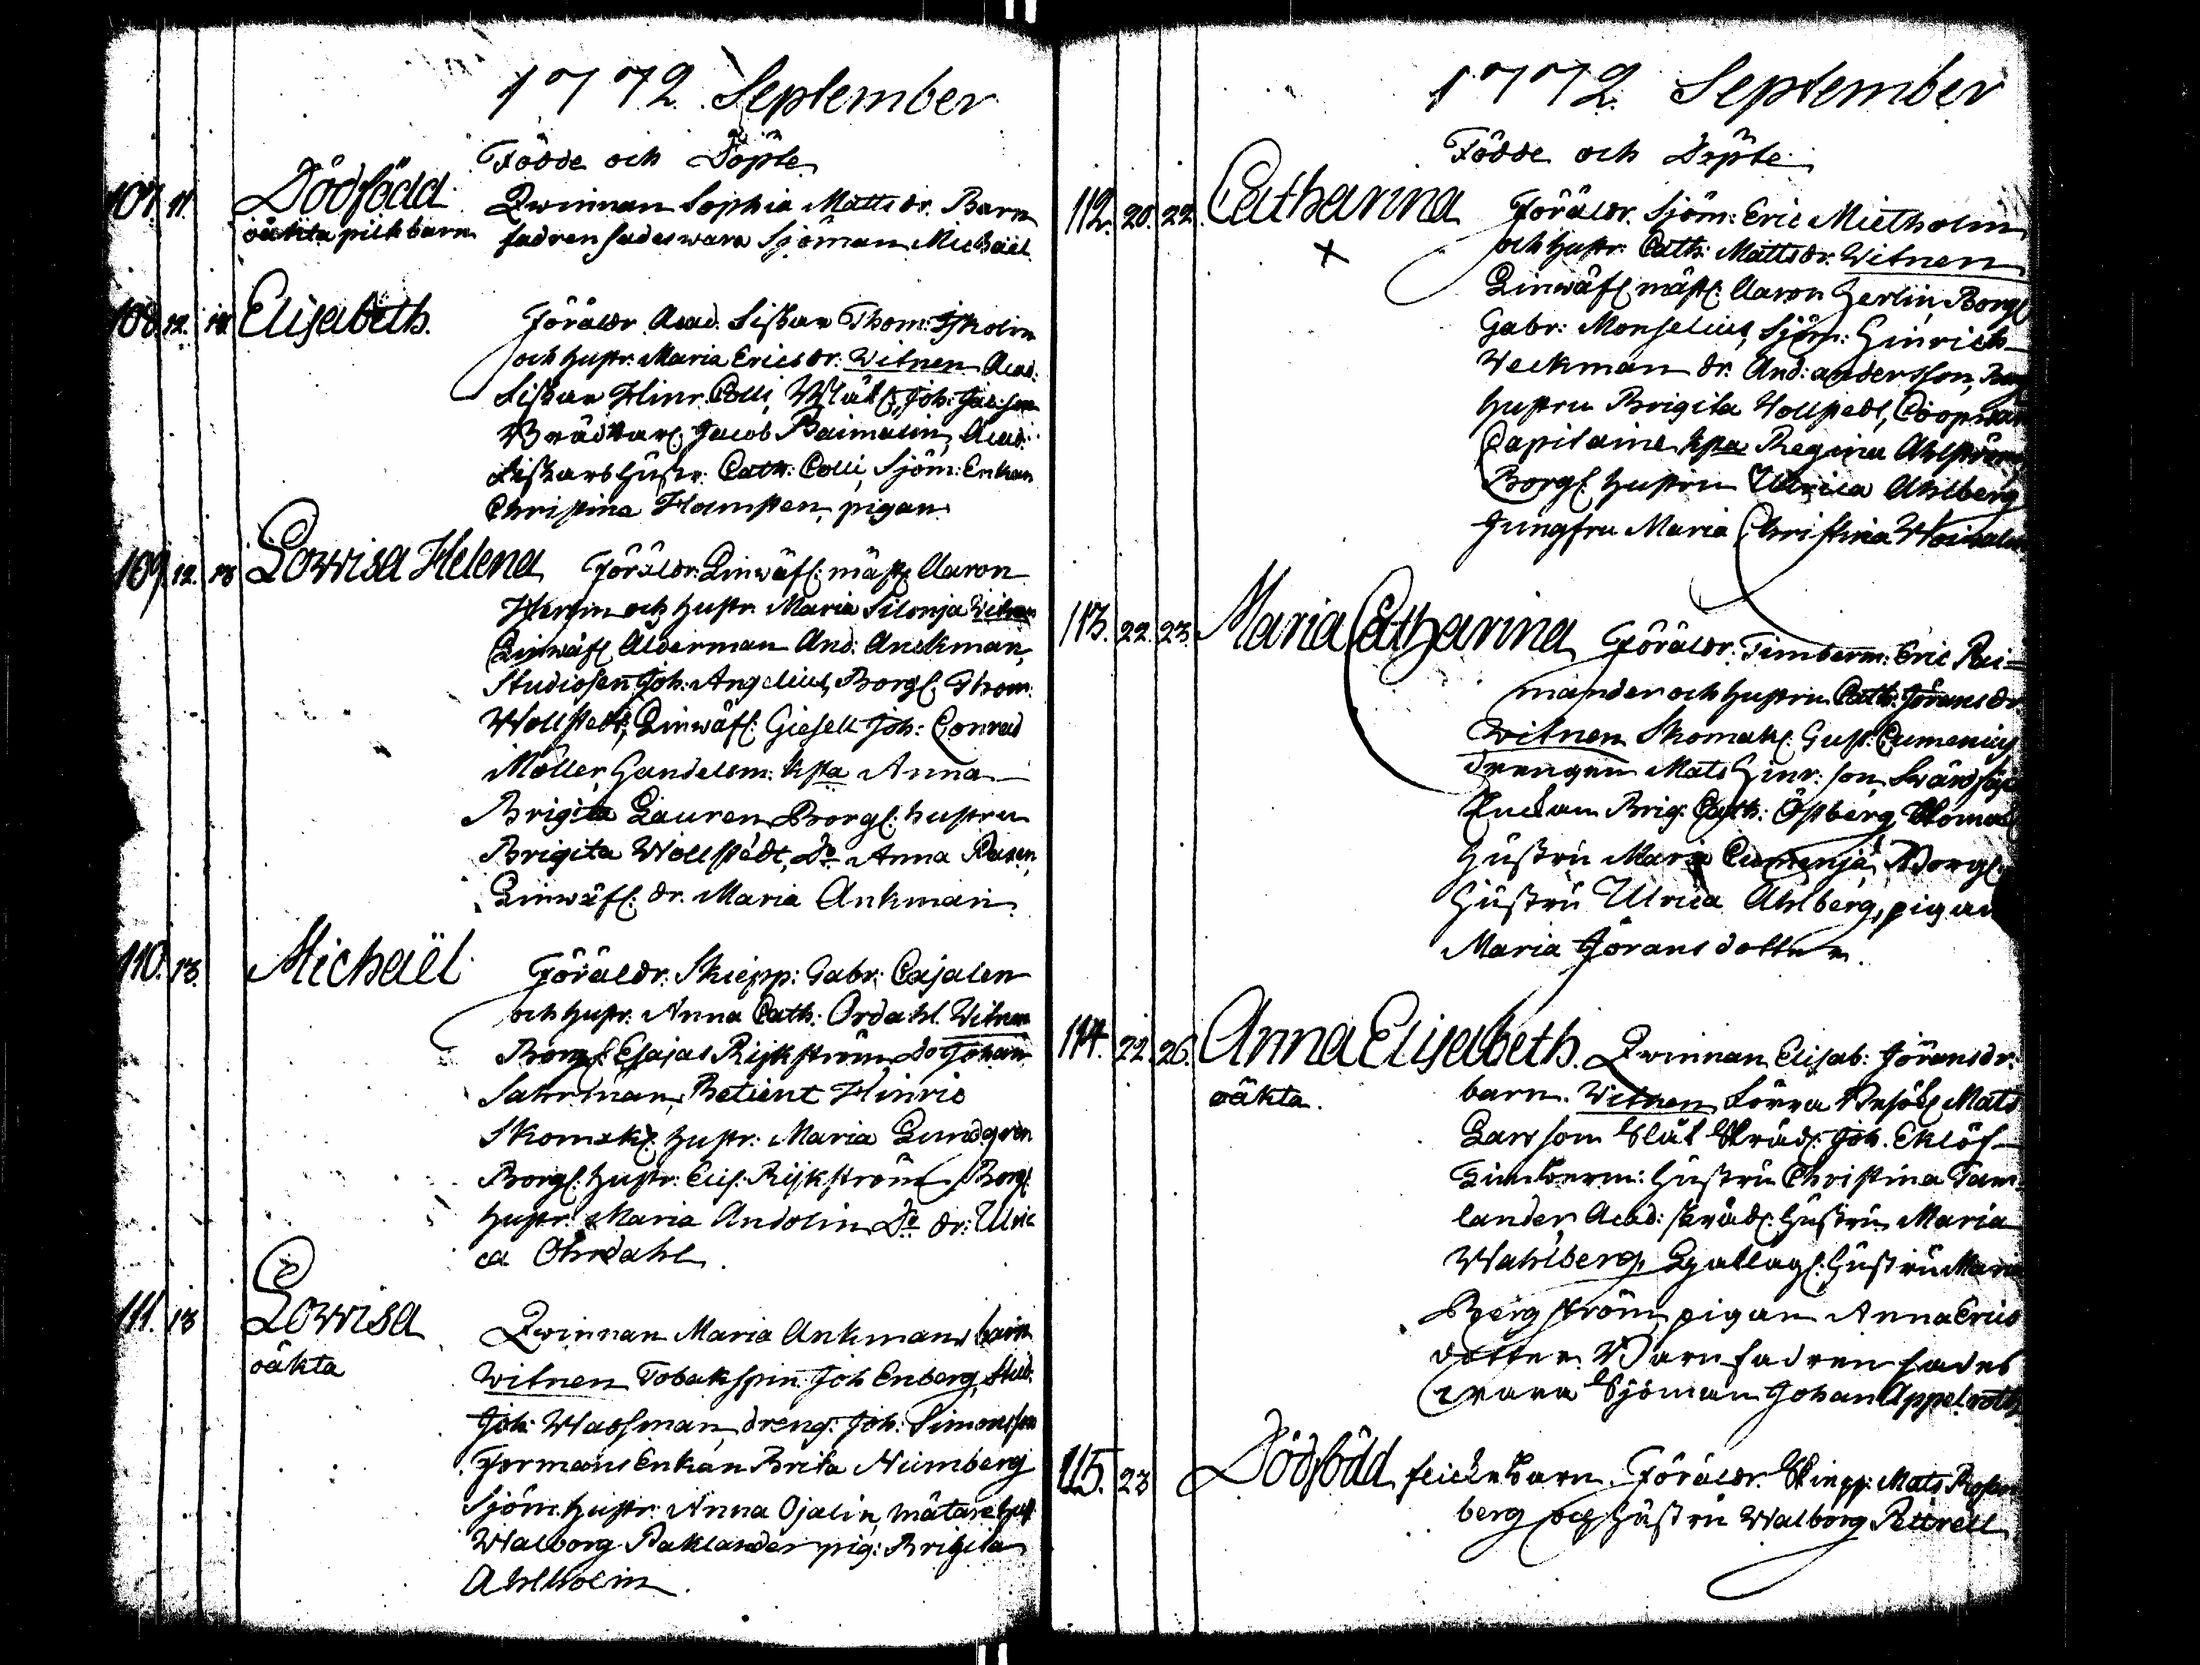 1772 September
Födde och Döpte
107. 11. Dödfödd Qwinnan Sophia Mattsdr. Barn
oäkta pilk barn fadren sades wara Sjöman Michaël
108. 12. 14. Elisabeth. Föräldr. Acad. Fiskar Thom:
och hustr. Maria Ericsdr. Witnen Acad:
Fiskar Hinr. Colli, Joh:
Jacob Acad:
Fiskars hustr. Cath: Colli, Sjöm: Enkan
Christina pigan
109. 12. 13 Lovvisa Helena Föräldr. Linwäfl: mäst: Aaron
och hustr. Maria Witnen
Linwäfl Alderman And: Anckman,
Studiosen Joh: Angelius, Borgl. Thom:
Wollstedt, Linwäfl: Giesell Joh: Conrad
Möller, Handelsm: Anna
Brigita Lauren Borgl: hustru
Brigita Wollstedt, Do Anna
Linwäfl: dr. Maria Ankman.
110. 13. Michaël Föräldr. Skiepp: Gabr: Cajalen
och hustr: Anna Cath: Ordahl. Witnen
Borgl: Esajas Rijkström Do Johan
Betient Hinric
Skomak: hustr: Maria Lundgren
Borgl: hustr: Elis: Rijkström, Borgl.
hustr: Maria Andolin Do dr: Ulric
ca Ohrdahl.
111. 13 Lovvisa Qwinnan Maria Ankmans barn
oäkta Witnen Tobakspin: Joh Enberg, Stud.
Joh: Wassman, dreng: Joh: Simonsson
Enkan Brita Nimberg
Sjöm: hustr: Anna Ojalin, mätare hust
Walborg Paklander pig: Brigita
Ahlholm.
1772 September
Födde och Döpte
112. 20. 22. Catharina Föräldr. Sjöm: Eric Mietholm
och hustr: Cath: Mattsdr. Witnen
Linwäfl mäst: Aaron Borgl
Gabr: Monselius, Sjöm: Hinrich
Veckman dr. And: andersson,
hustru Brigita Wollstedt, Coopwar
Capitaine Regina Ahlström
Borgl: hustru Ulrica Ahlberg
Jungfru Maria Christina
113. 22. 23. Maria Catharina Föräldr: Timberm: Eric Rai=
mander och hustru Cath: Jöransdr.
Witnen Skomak: Gust: Cumenius
drengen Mats Hinr: son,
Enckan Brig: Cath: Östberg,
Hustru Maria Cumenja, Borgl:
Hustru Ulrica Ahlberg, pigan
Maria Jörans dotter.
114. 22. 26. Anna Elisabeth. Qwinnan Elisab: Jöransdr:
oäkta. barn. Witnen Mats
Larsson Skräd: Joh. Eklöf
Timberm: Hustru Christina Tam
lander, Acad: skräd: Hustru Maria
Wahlberg, Hustru Maria
Bergström, pigan Anna Erics
dotter. Barnfadren sades
wara Sjöman Johan Appelroth
115. 23 Dödfödd flicke barn. Föräldr. Skiepp: Mats Rosen
berg och Hustru Walborg Pettrell